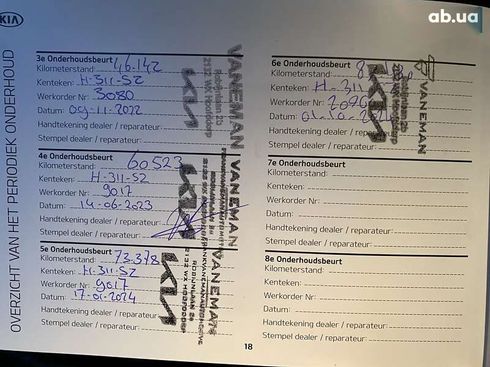 ab.ua
KIA
OVERZICHT VAN HET PERIODIEK ONDERHOUD
3e Onderhoudsbeurt
Kilometerstand: 46.142
Kenteken: H-311-SZ
Werkorder Nr: 3080
Datum: 09-11-2022
Handtekening dealer / reparateur:
Stempel dealer / reparateur:
VANEMAN
2132 WX Hoofddorp
4e Onderhoudsbeurt
Kilometerstand: 60523
Kenteken: H-311-SZ
Werkorder Nr: 9017
Datum: 14-06-2023
Handtekening dealer / reparateur:
Stempel dealer / reparateur:
VANEMAN
5e Onderhoudsbeurt
Kilometerstand: 73.378
Kenteken: H-311-SZ
Werkorder Nr: 9017
Datum: 17-01-2024
Handtekening dealer / reparateur:
Stempel dealer / reparateur:
VANEMAN
2132 WX HOOFDDORP
6e Onderhoudsbeurt
Kilometerstand:
Kenteken: H-311
Werkorder Nr:
Datum:
Handtekening dealer / reparateur:
Stempel dealer / reparateur:
VANEMAN
7e Onderhoudsbeurt
Kilometerstand:
Kenteken:
Werkorder Nr:
Datum:
Handtekening dealer / reparateur:
Stempel dealer / reparateur:
8e Onderhoudsbeurt
Kilometerstand:
Kenteken:
Werkorder Nr:
Datum:
Handtekening dealer / reparateur:
Stempel dealer / reparateur:
18